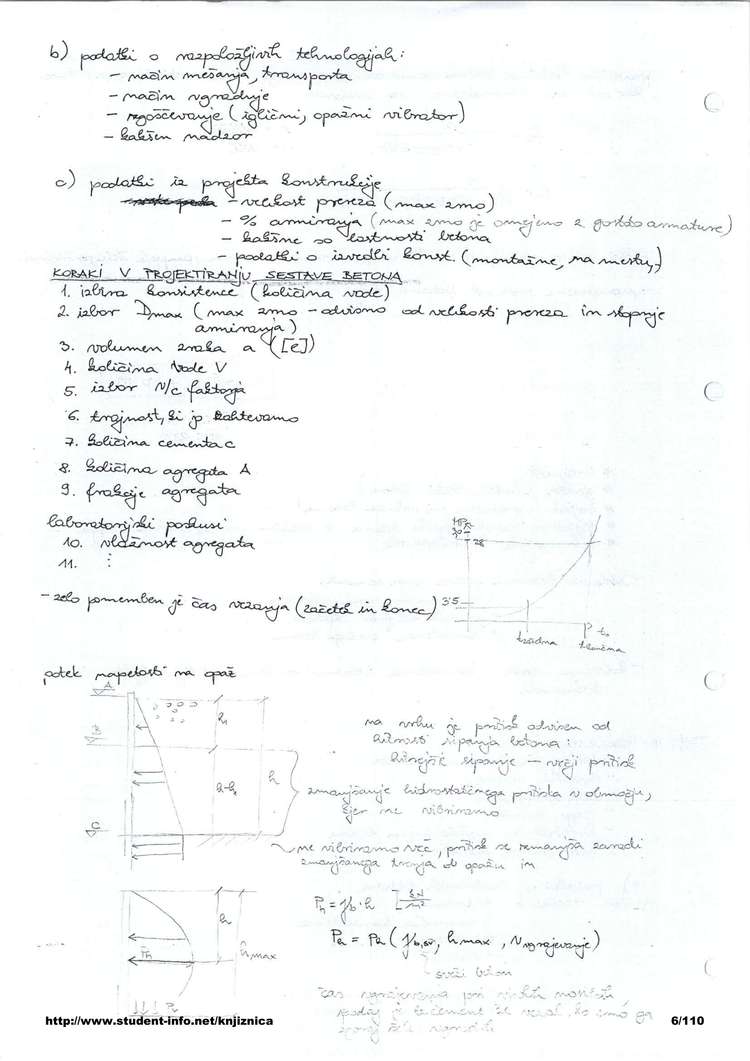 b) podatki o razpoložljivih tehnologijah:
- način mešanja, transporta
- način vgradnje
- zgoščevanje (iglični, opažni vibrator)
- kakšen nadzor
c) podatki iz projekta konstrukcije
- velikost prereza (max zrno)
- % armiranja (max zrno je omejeno z gostoto armature)
- kakšne so lastnosti betona
- podatki o izvedbi konst. (montažne, na mestu,)
KORAKI V PROJEKTIRANJU SESTAVE BETONA
1. izbira konsistence (količina vode)
2. izbor Dmax (max zrno - odvisno od velikosti prereza in stopnje
armiranja)
3. volumen zraka a ([l])
4. količina vode V
5. izbor v/c faktorja
6. trajnost, ki jo zahtevamo
7. količina cementa c
8. količina agregata A
9. frakcije agregata
laboratorijski poskusi
10. vlažnost agregata
11. ⋮
MPa
30
28
3.5
- zelo pomemben je čas vezanja (začetek in konec)
trdna
P
potek napetosti na opaž
A
B
C
h₁
h-h₁
h
na vrhu je pritisk odvisen od
hitrosti sipanja betona:
hitrejše sipanje - večji pritisk
zmanjšanje hidrostatičnega pritiska v območju,
kjer ne vibriramo
ne vibriramo več, pritisk se zmanjša zaradi
zmanjšanega trenja ob opažu in
Ph = γb·h [kN/m²]
h
Ph
hmax
Ph = Ph (γb,sv, hmax, vvgrajevanje)
sveži beton
čas vgrajevanja pri
http://www.student-info.net/knjiznica
6/110